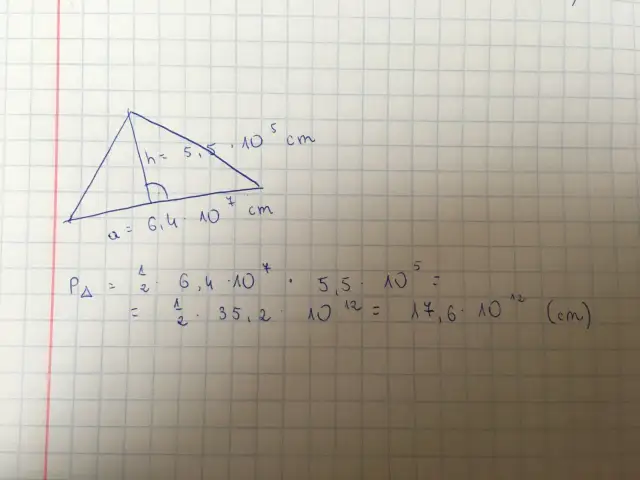 h = 5,5 · 10⁵ cm
a = 6,4 · 10⁷ cm
P△ = 1/2 · 6,4 · 10⁷ · 5,5 · 10⁵ =
= 1/2 · 35,2 · 10¹² = 17,6 · 10¹² (cm)